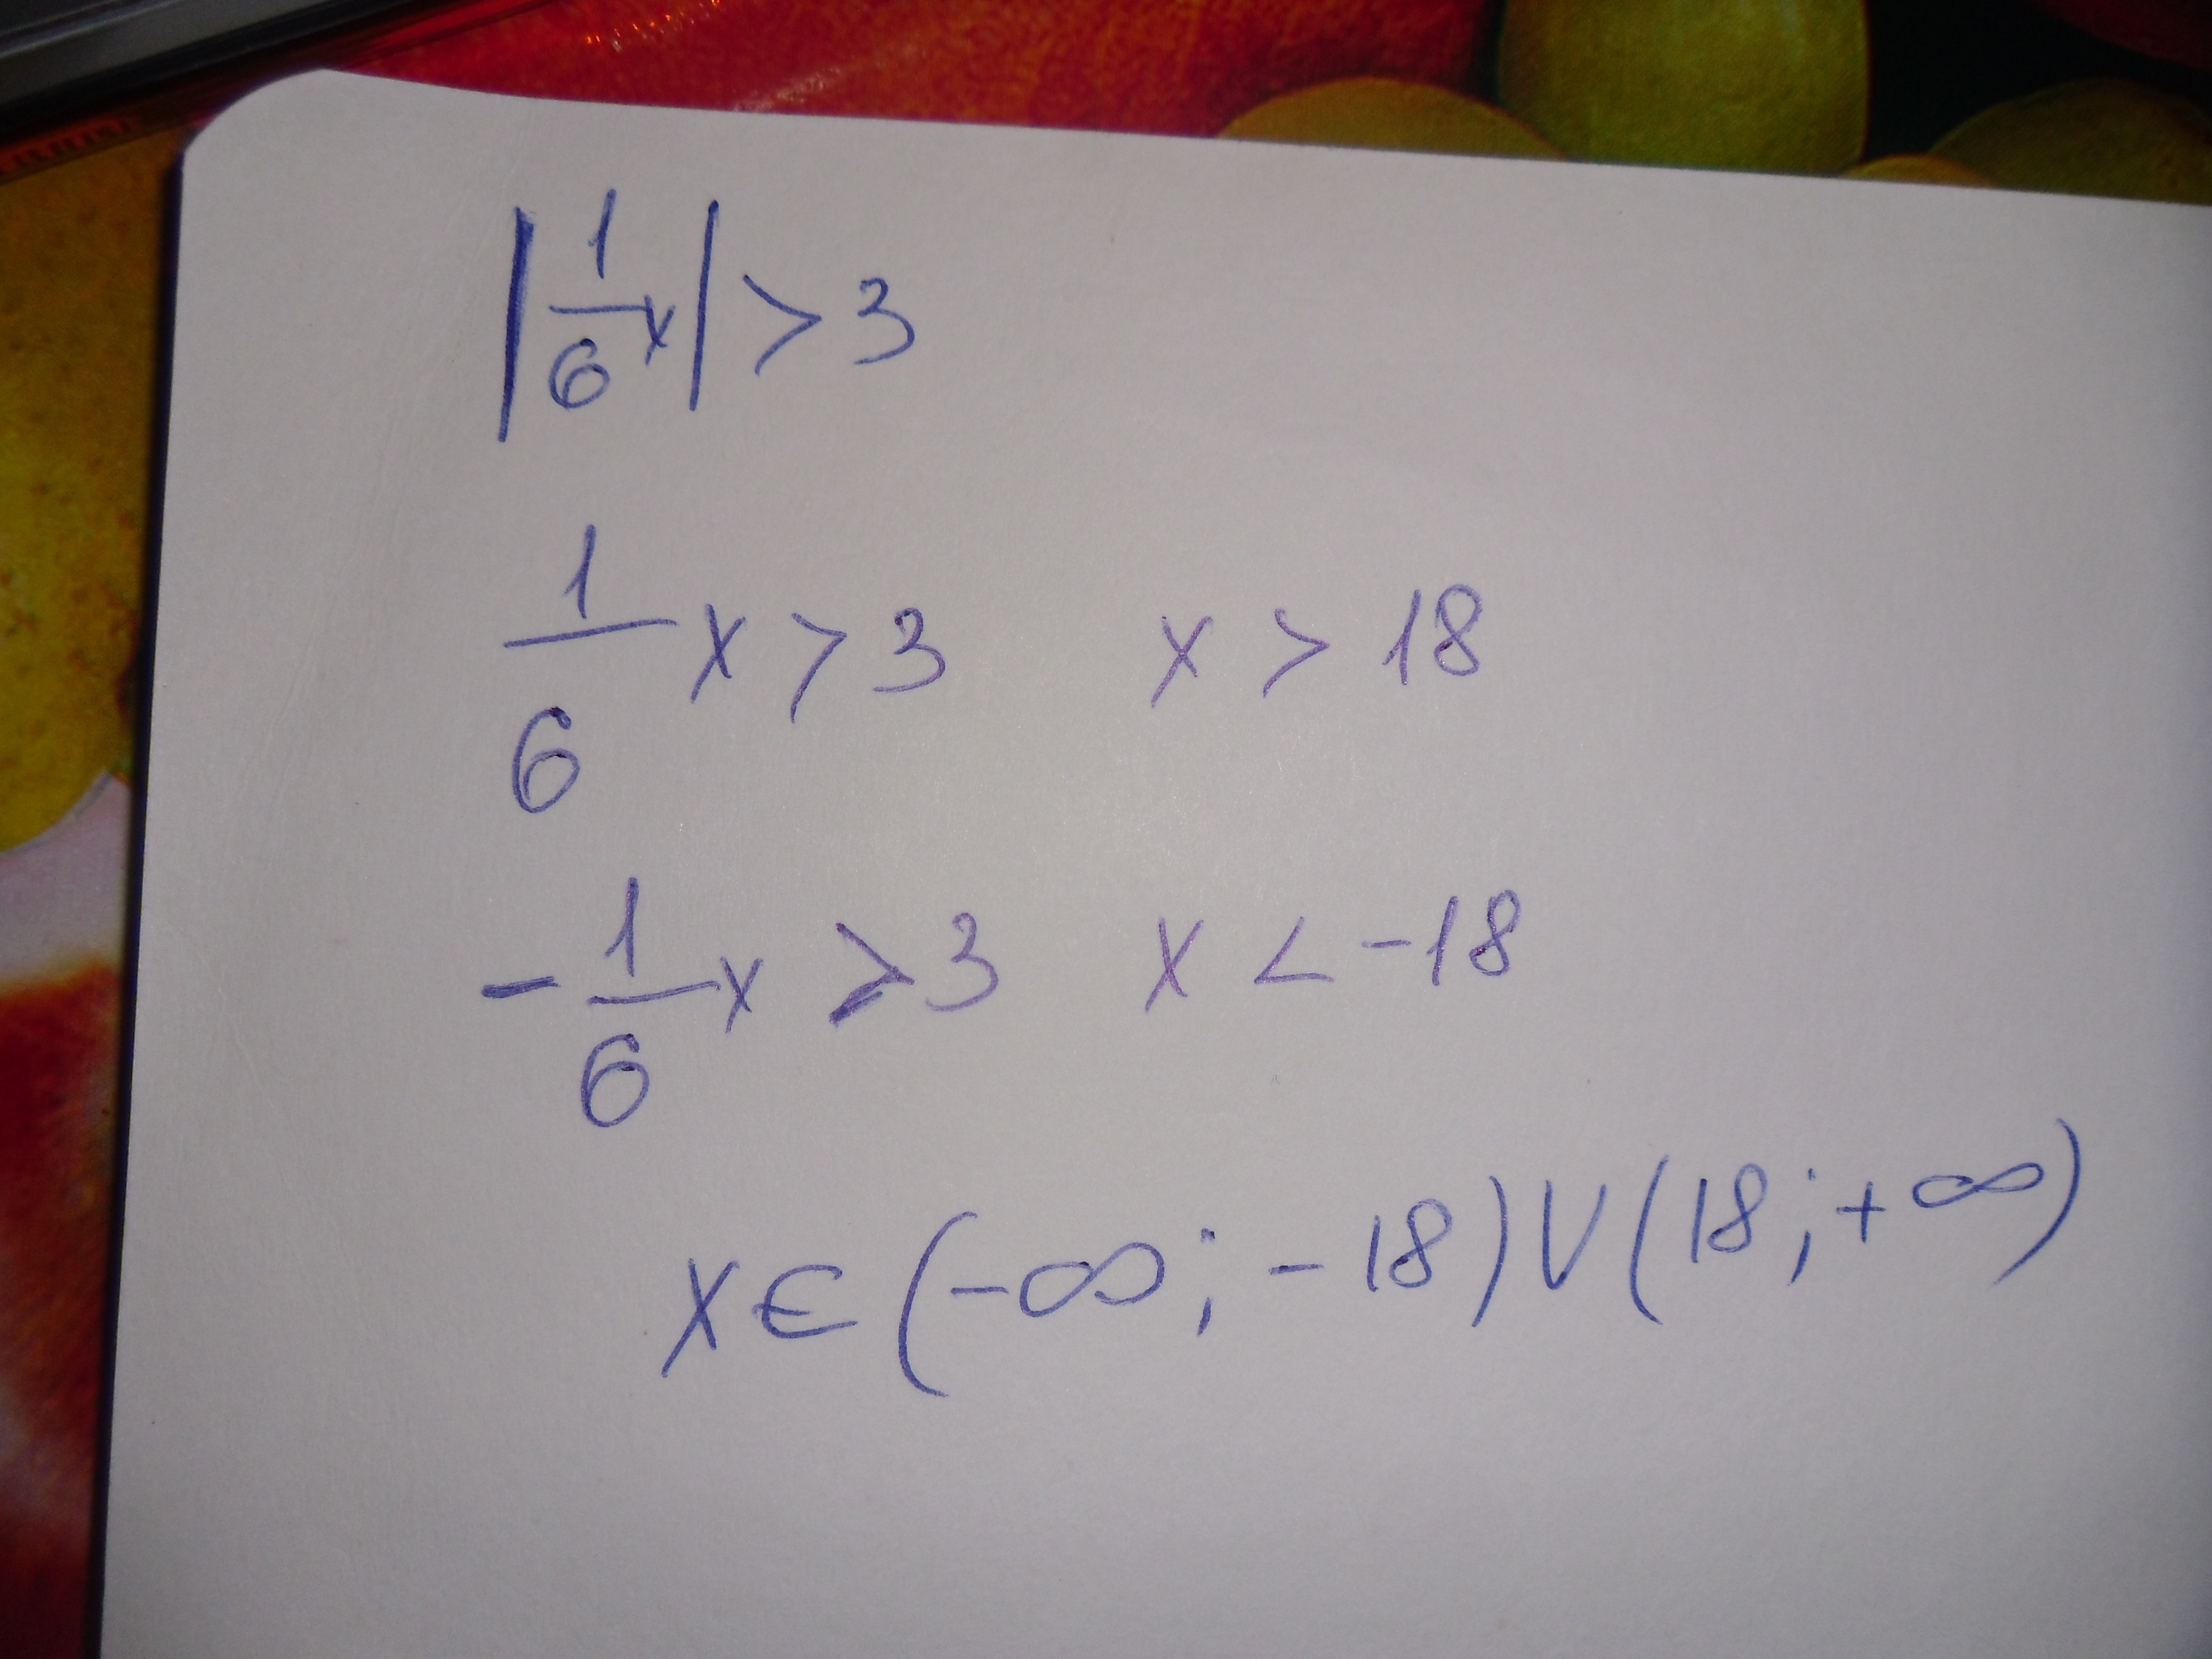 |1/6 x| > 3
1/6 x > 3 x > 18
- 1/6 x > 3 x < -18
x ∈ (-∞; -18) ∪ (18; +∞)